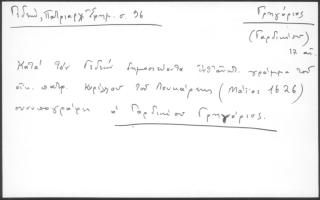 Γεδεών, Πατριαρχ. Εφημ. σ. 96
Γρηγόριος
(Γαρδικίου)
17 αι.
Κατά τον Γεδεών δημοσιεύεται γράμμα του
οικ. πατρ. Κυρίλλου του Λουκάρεως (Μάϊος 1626)
συνυπογράφει ο Γαρδικίου Γρηγόριος.